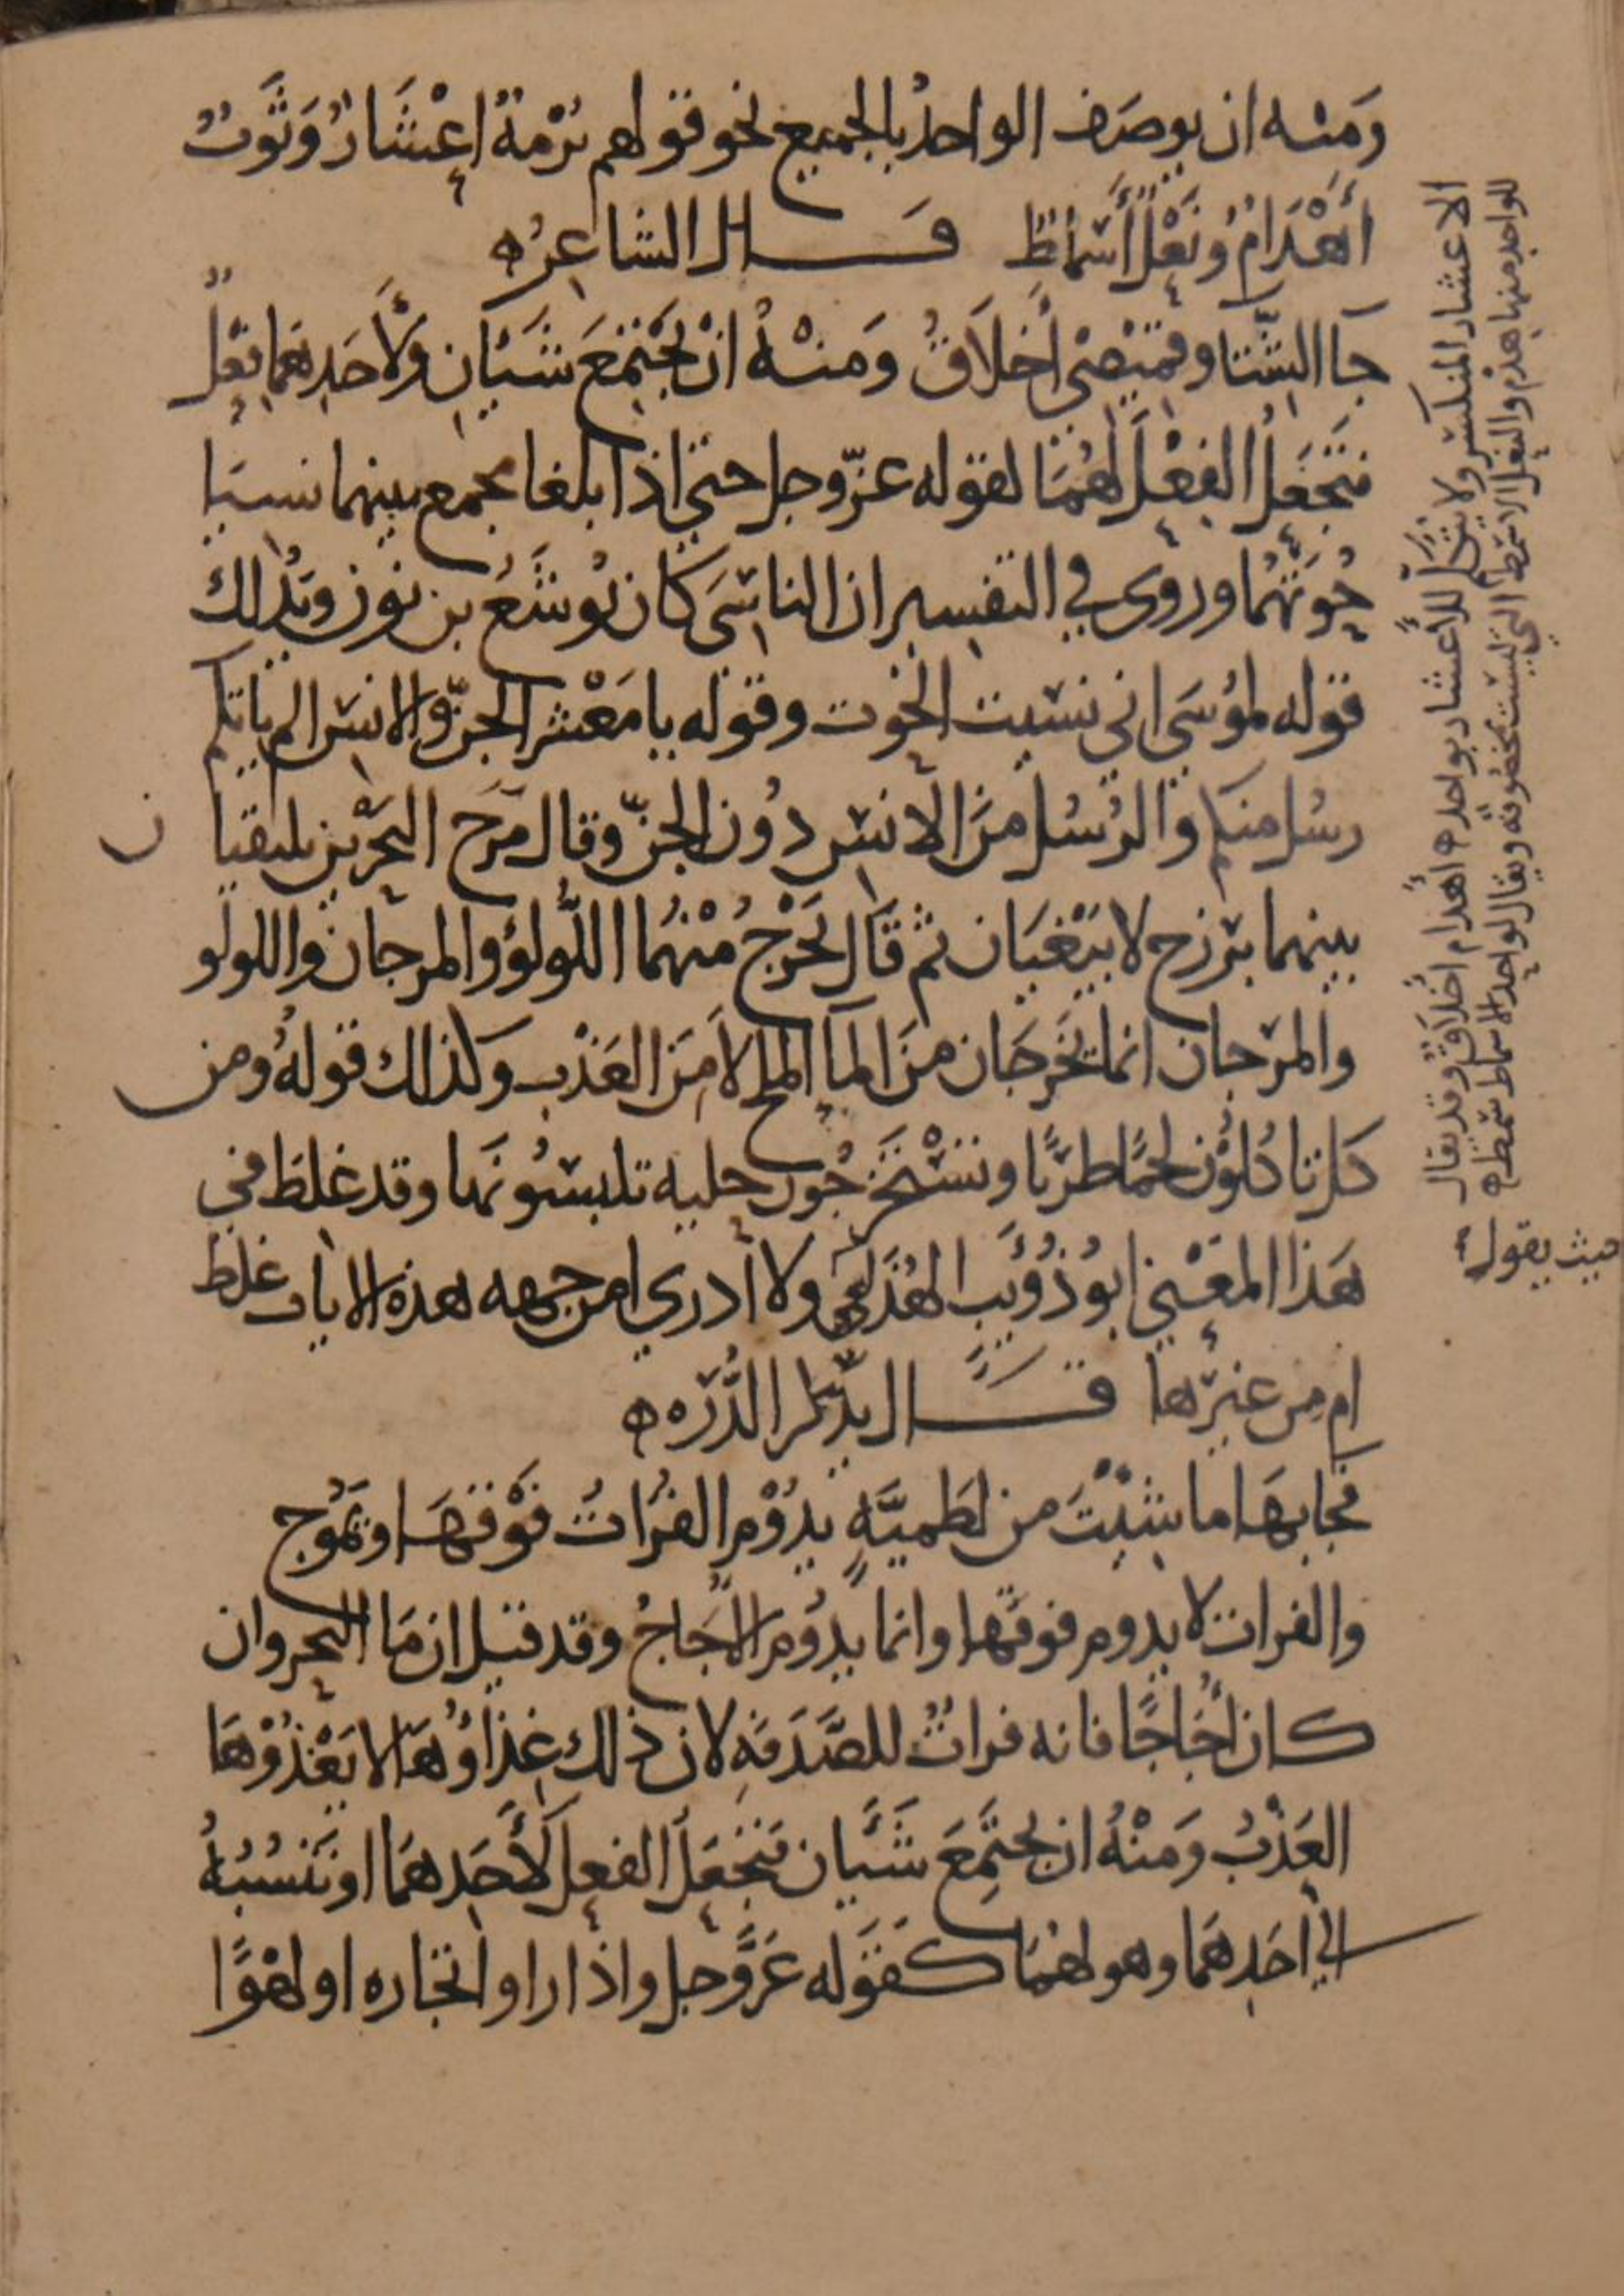 وَمنه ان يوصَف الواحدُ بالجميع نحو قولهم بُرْمَةٌ اعْشَارٌ وَثَوبٌ
أَهْدَامٌ وَنَعْلٌ أَسْمَاطٌ قال الشاعِرُ ه
جَا الشّتا وقميْصيْ أخلاَقٌ وَمنْهُ انْ يَجْتمعَ شَيْآنِ وِلأَحَدِهمَا فعْلٌ
فتَجْعَلُ الفِعْلَ لهُمَا لقوله عزّوجل حتي اذا بلغا مجمع بينهما نسيَا
حُوتَهُمَا وروي في التفسير ان الناسيَ كان يُوشَعُ بن نون وبذلك
قوله لموُسَي اني نسيت الحوت وقوله يا مَعْشر الجنّ والانس الم ياتكم
رسُل منكم والرُسُل منَ الانس دُون الجنّ وقال مَرَجَ البَحْرين يلتقيان
بينهما برزخ لا يَبْغيَان ثم قَال يَخرُجُ مْنهُمَا اللُّولؤ والمرجان واللولو
والمرجان انما يَخْرجَان منَ المآ الملح لا مَنَ العَذْب وكذلك قوله ومن
كل تاكُلوُن لحمًا طريًّا وتَسْتَخرجُون حلية تلبسُونَها وقد غلط في
هَذا المعْني ابوُ ذُؤيْب الهُذَلي ولا أدري امن جهه هذه الايات غلط
ام من غيرها قال يذكر الدُّرَّه ه
فجابهَا ما شيْتَ من لطَميَّةٍ يدُوْمُ الفُرَاتُ فوْقهَا ويَموُج
والفرات لا يدوم فوقها وانما يدُوم الاُجَاجُ وقد قيل ان مَا البحر وان
كان أُجَاجًا فانه فراتٌ للصَّدَفةِ لان ذلك غِذاؤُهَا لا يَغْذُوْهَا
العَذْبُ وَمنْهُ ان يجْتمعَ شَيْآن فتَجْعَلَ الفعل لأَحَدهمَا او تَنْسُبُهُ
الي احَدِهمَا وهو لهُمَا كقوله عَزَّوجل واذا راوا تجاره او لهْوًا
الاعشار المنكسر ولا يُتكلَّم للأعشار بواحد ه اهْدام اخْلاَقٌ وقد يقال
للواحد منها هدم والنعل الاسْمَاط التي ليست بمخصُوفَة ويقال لواحد الاسماط سمط ه
حيث يقول